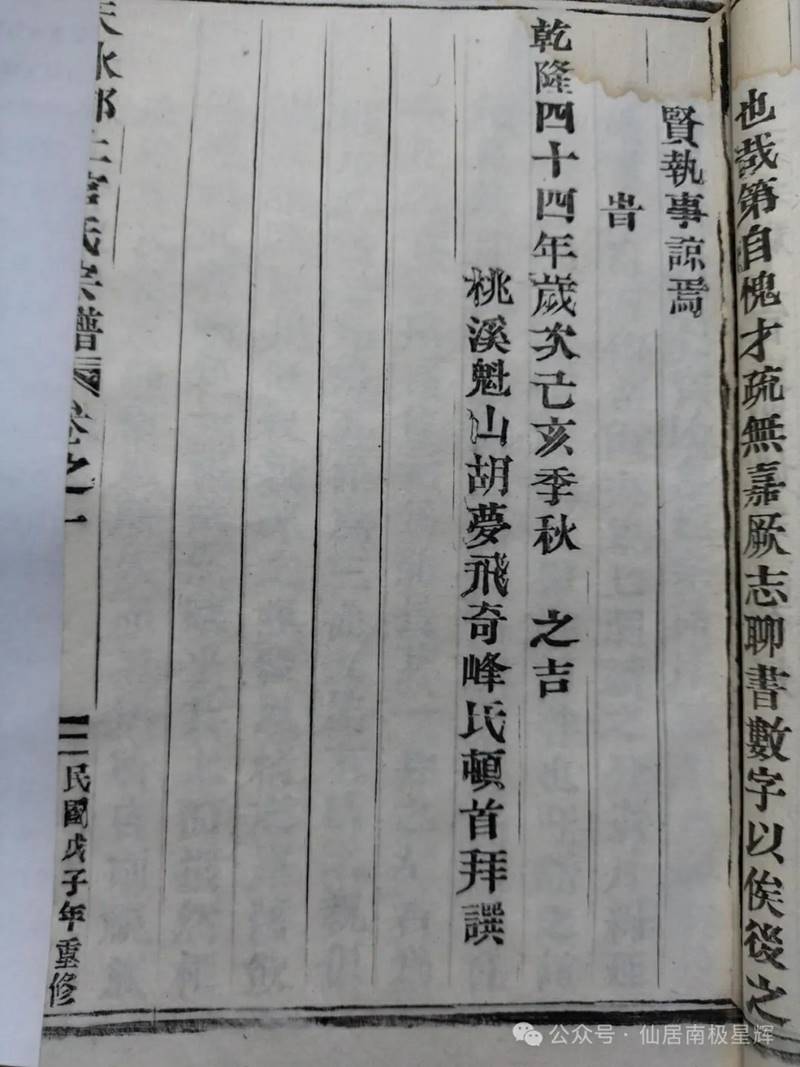 也哉第自愧才疏無嘉厥志聊書數字以俟後之
賢執事諒焉
旹
乾隆四十四年歲次己亥季秋 之吉
桃溪魁山胡夢飛奇峰氏頓首拜譔
天水郡上官氏宗譜 卷之一
民國戊子年重修
公众号·仙居南极星辉